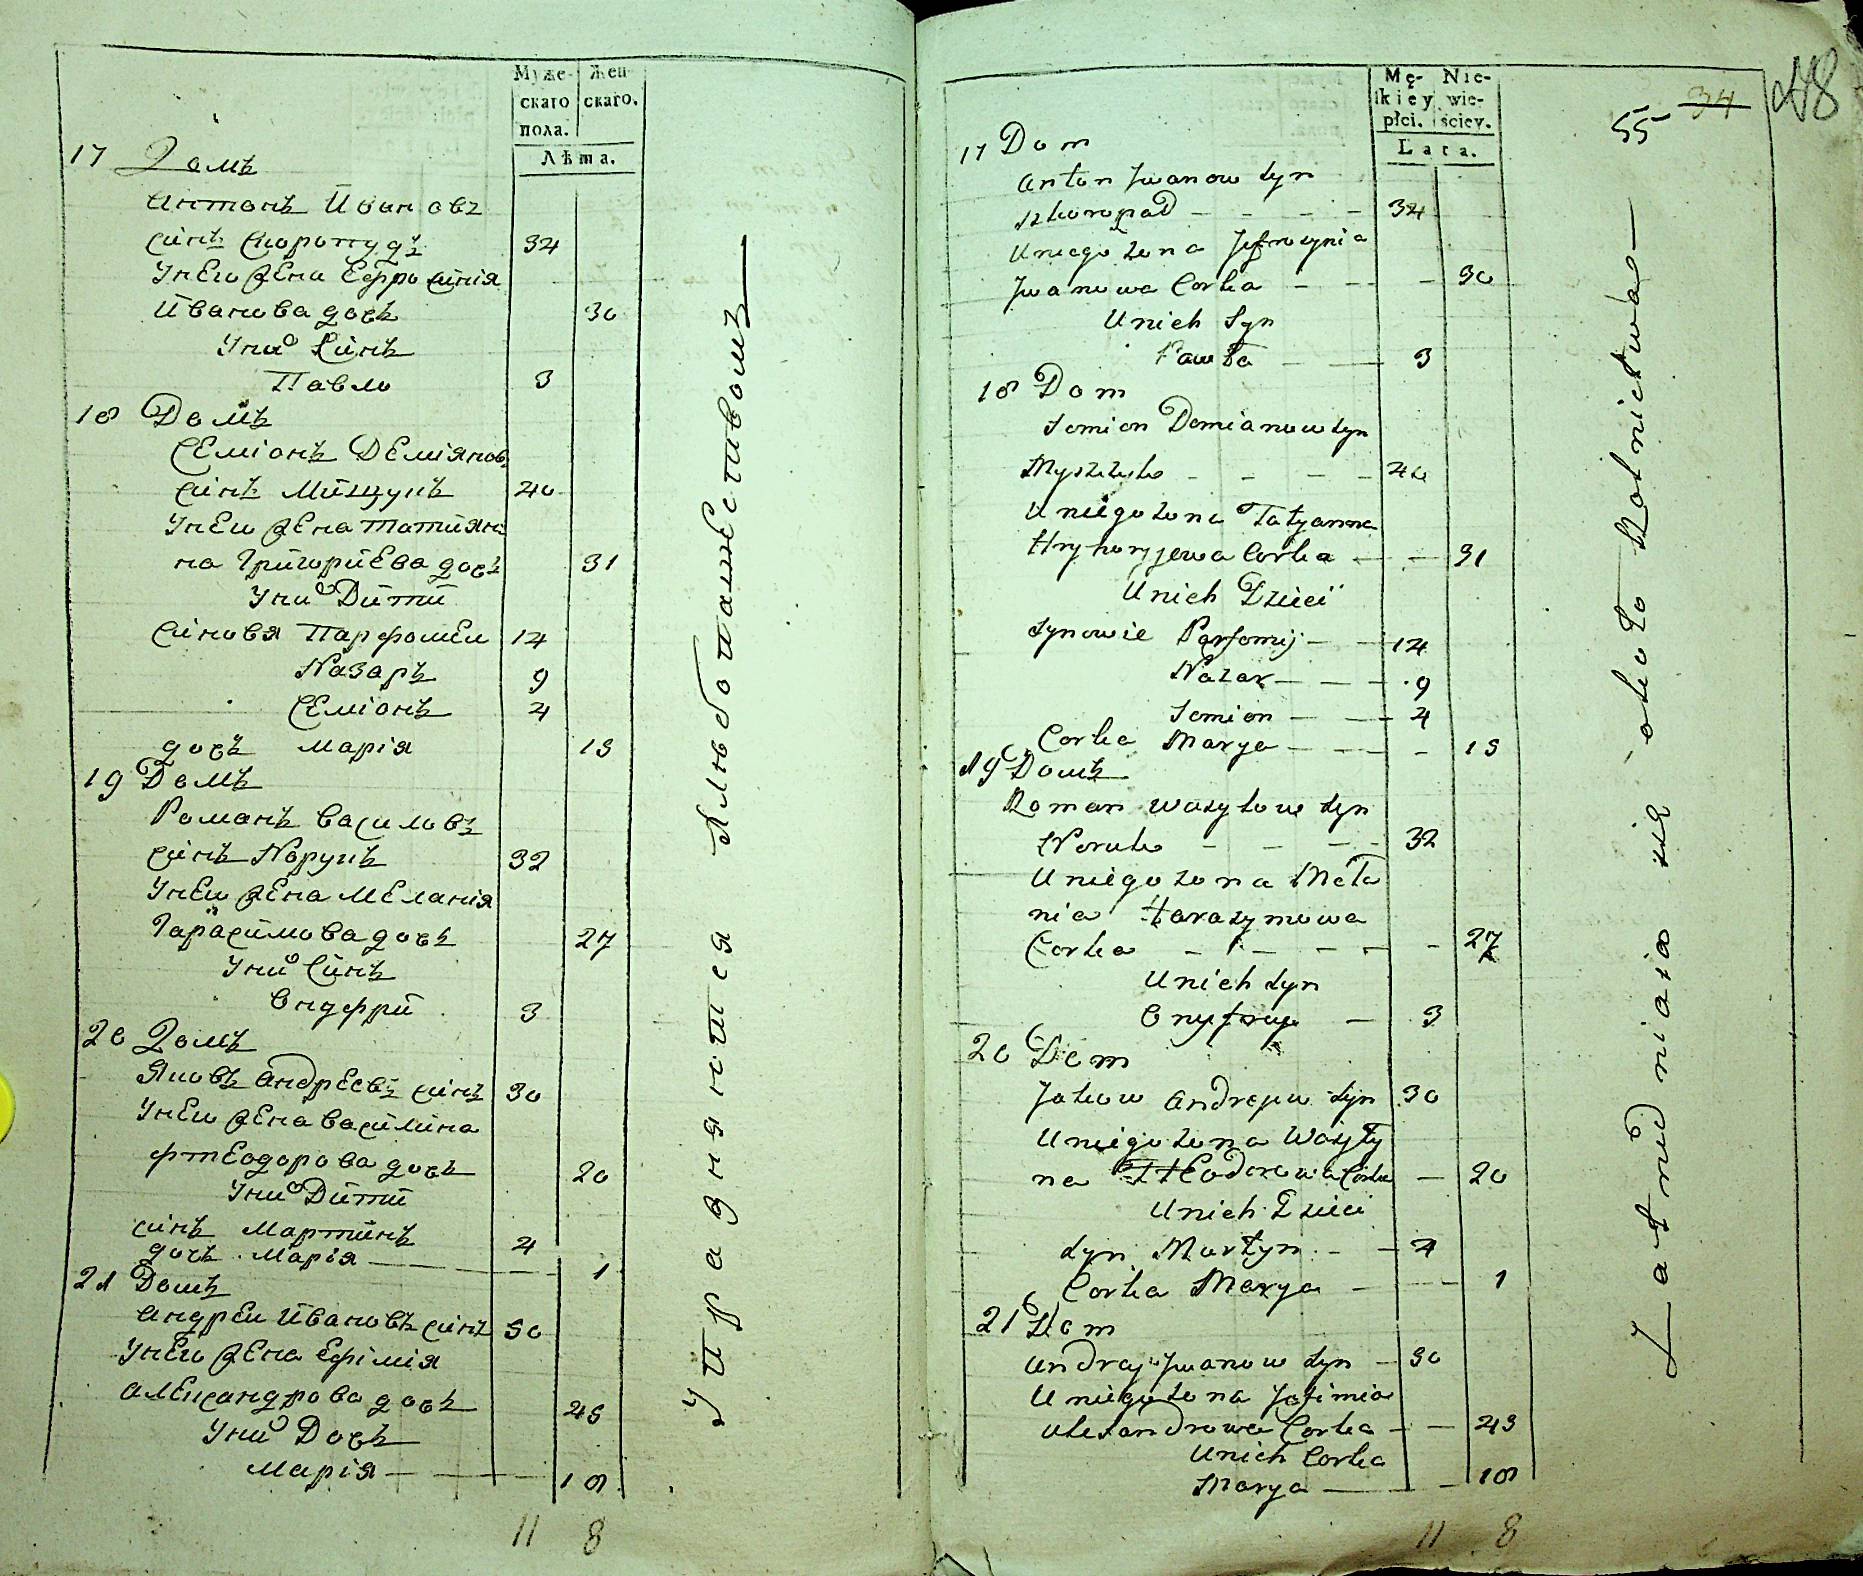 Муже-
скаго
пола.
Жен-
скаго.
Лѣта.
17 Домъ
Антонъ Ивановъ
синъ Скоропудъ 34
Унего жена Ефросинія
Иванова дочь 30
Уних Синъ
Павло 3
18 Домъ
Семіонъ Деміянов
синъ Мишукъ 40
Унего жена Татияна
на Григориева дочь 31
Уних Дити
Синовя Парфомеи 14
Назаръ 9
Семіонъ 4
дочь Марія 13
19 Домъ
Романъ Василовъ
синъ Норукъ 32
Унего жена Меланія
Гарасимова дочь 27
Уних Синъ
Ондфрий 3
20 Домъ
Яковъ Андреевъ синъ 30
Унего жена Василина
Фтеодорова дочь 20
Уних Дити
синъ Мартинъ 4
дочь Марія 1
21 Домъ
Андреи Ивановъ синъ 50
Унего жена Ефімія
Александрова дочь 43
Уних Дочь
Марія 18
11 8
Упраднятся Хлюбопашествомъ
Mę-
ſkiey
płci.
Nie-
wie-
ściey.
Lata.
55 34 48
17 Dom
Anton Jwanow Syn
Skoropad 34
Uniego Zona Jefrosynia
Jwanowa Corka 30
Unich Syn
Pawło 3
18 Dom
Semion Demianow Syn
Myszczuk 40
Uniego Zona Tatyanna
Hryhoryjewa Corka 31
Unich Dzieci
Synowie Parfomij 14
Nazar 9
Semion 4
Corka Marya 13
19 Домъ
Roman Wasylow Syn
Noruk 32
Uniego Zona Mela
nia Harasymowa
Corka 27
Unich Syn
Onyfrey 3
20 Dom
Jakow Andrejew Syn 30
Uniego Zona Wasyly
na Fteodorowa Corka 20
Unich Dzieci
Syn Martyn 4
Corka Marya 1
21 Dom
Andrey Jwanow Syn 50
Uniego Zona Jefimia
Alexandrowa Corka 43
Unich Corka
Marya 18
11 8
Zatrudniaia się około Rolnictwa